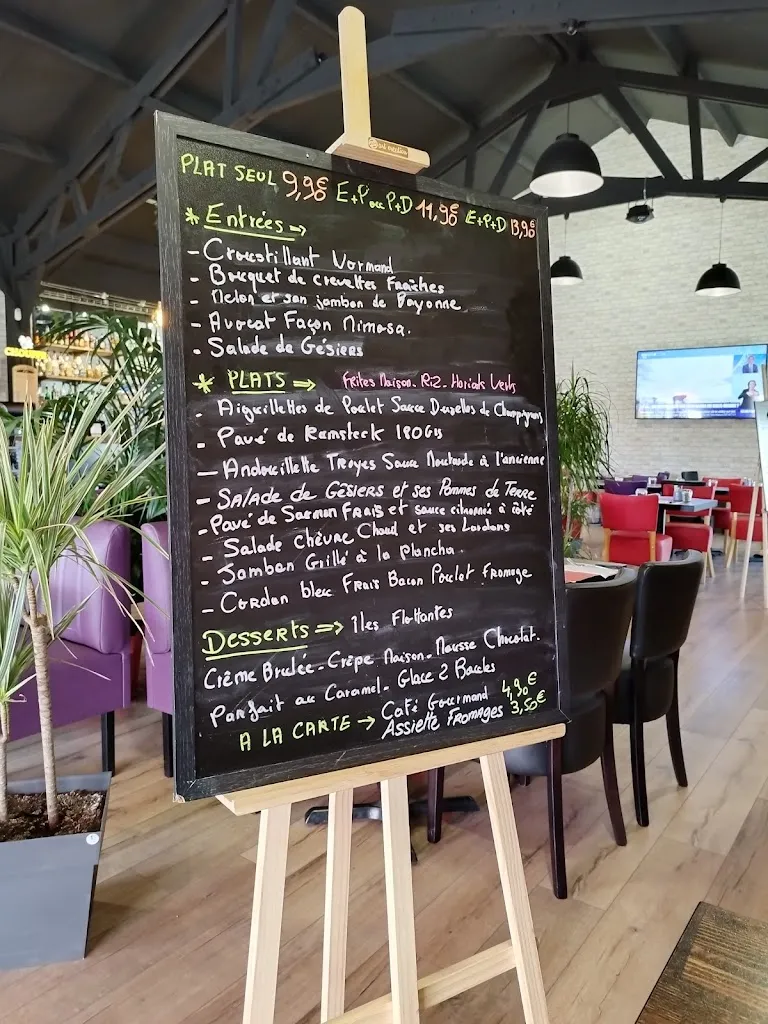 PLAT SEUL 9,90€ E+P ou P+D 11,90€ E+P+D 13,90€
* Entrées →
- Croustillant Normand
- Bouquet de crevettes Fraîches
- Melon et son jambon de Bayonne
- Avocat Façon Mimosa.
- Salade de Gésiers
* PLATS ⇒ Frites Maison. Riz. Haricots Verts
- Aiguillettes de Poulet Sauce Duxelles de Champignons
- Pavé de Ramsteck 180Grs
- Andouillette Troyes Sauce Moutarde à l'ancienne
- SALADE de GÉSIERS et ses Pommes de Terre
- Pavé de Saumon FRAIS et sauce citronnée à côté
- Salade Chèvre Chaud et ses Lardons
- Jambon Grillé à la Plancha.
- Cordon bleu FRAIS Bacon Poulet Fromage
Desserts ⇒ Iles Flottantes
Crème Brulée - Crèpe Maison - Mousse Chocolat.
Parfait au Caramel - Glace 2 Boules
A LA CARTE → Café Gourmand 4,90€
Assiette FROMAGES 3,50€